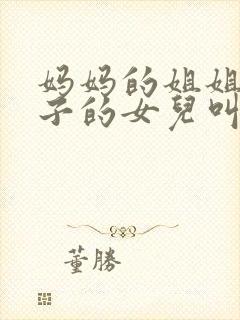 妈妈的姐姐
子的女兒叫
董勝